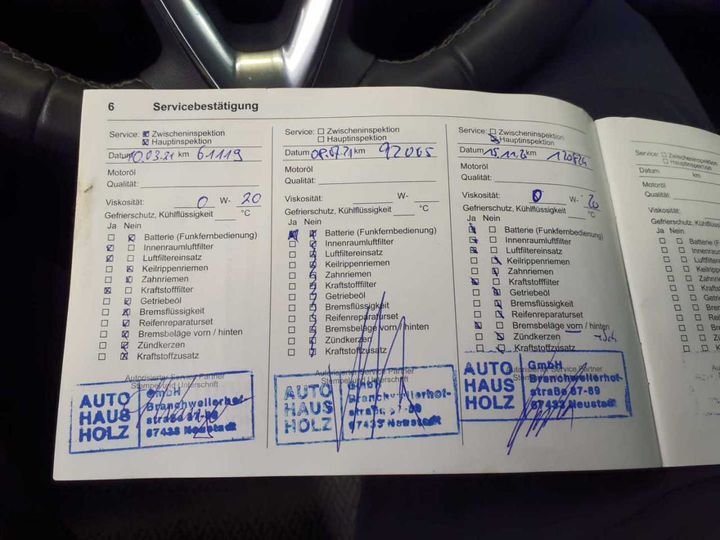 6 Servicebestätigung
Service: Zwischeninspektion
Hauptinspektion
Datum 10.03.21 km 61119
Motoröl
Qualität:
Viskosität: 0 W- 20
Gefrierschutz, Kühlflüssigkeit °C
Ja Nein
Batterie (Funkfernbedienung)
Innenraumluftfilter
Luftfiltereinsatz
Keilrippenriemen
Zahnriemen
Kraftstofffilter
Getriebeöl
Bremsflüssigkeit
Reifenreparaturset
Bremsbeläge vorn / hinten
Zündkerzen
Kraftstoffzusatz
Autorisierter Service Partner
Stempel und Unterschrift
AUTO
HAUS
HOLZ
GmbH
Branchweilerhof-
straße 87-89
67433 Neustadt
Service: Zwischeninspektion
Hauptinspektion
Datum km 92065
Motoröl
Qualität:
Viskosität: W-
Gefrierschutz, Kühlflüssigkeit °C
Ja Nein
Batterie (Funkfernbedienung)
Innenraumluftfilter
Luftfiltereinsatz
Keilrippenriemen
Zahnriemen
Kraftstofffilter
Getriebeöl
Bremsflüssigkeit
Reifenreparaturset
Bremsbeläge vorn / hinten
Zündkerzen
Kraftstoffzusatz
Autorisierter Service Partner
Stempel und Unterschrift
AUTO
HAUS
HOLZ
GmbH
Branchweilerhof-
straße 87-89
67433 Neustadt
Service: Zwischeninspektion
Hauptinspektion
Datum 15.11.21 km
Motoröl
Qualität:
Viskosität: 0 W- 20
Gefrierschutz, Kühlflüssigkeit °C
Ja Nein
Batterie (Funkfernbedienung)
Innenraumluftfilter
Luftfiltereinsatz
Keilrippenriemen
Zahnriemen
Kraftstofffilter
Getriebeöl
Bremsflüssigkeit
Reifenreparaturset
Bremsbeläge vorn / hinten
Zündkerzen
Kraftstoffzusatz
Autorisierter Service Partner
AUTO
HAUS
HOLZ
GmbH
Branchweilerhof-
straße 87-89
67433 Neustadt
Service: Zwischeninspektion
Hauptinspektion
Datum km
Motoröl
Qualität:
Viskosität:
Gefrierschutz, Kühlflüssigkeit
Ja Nein